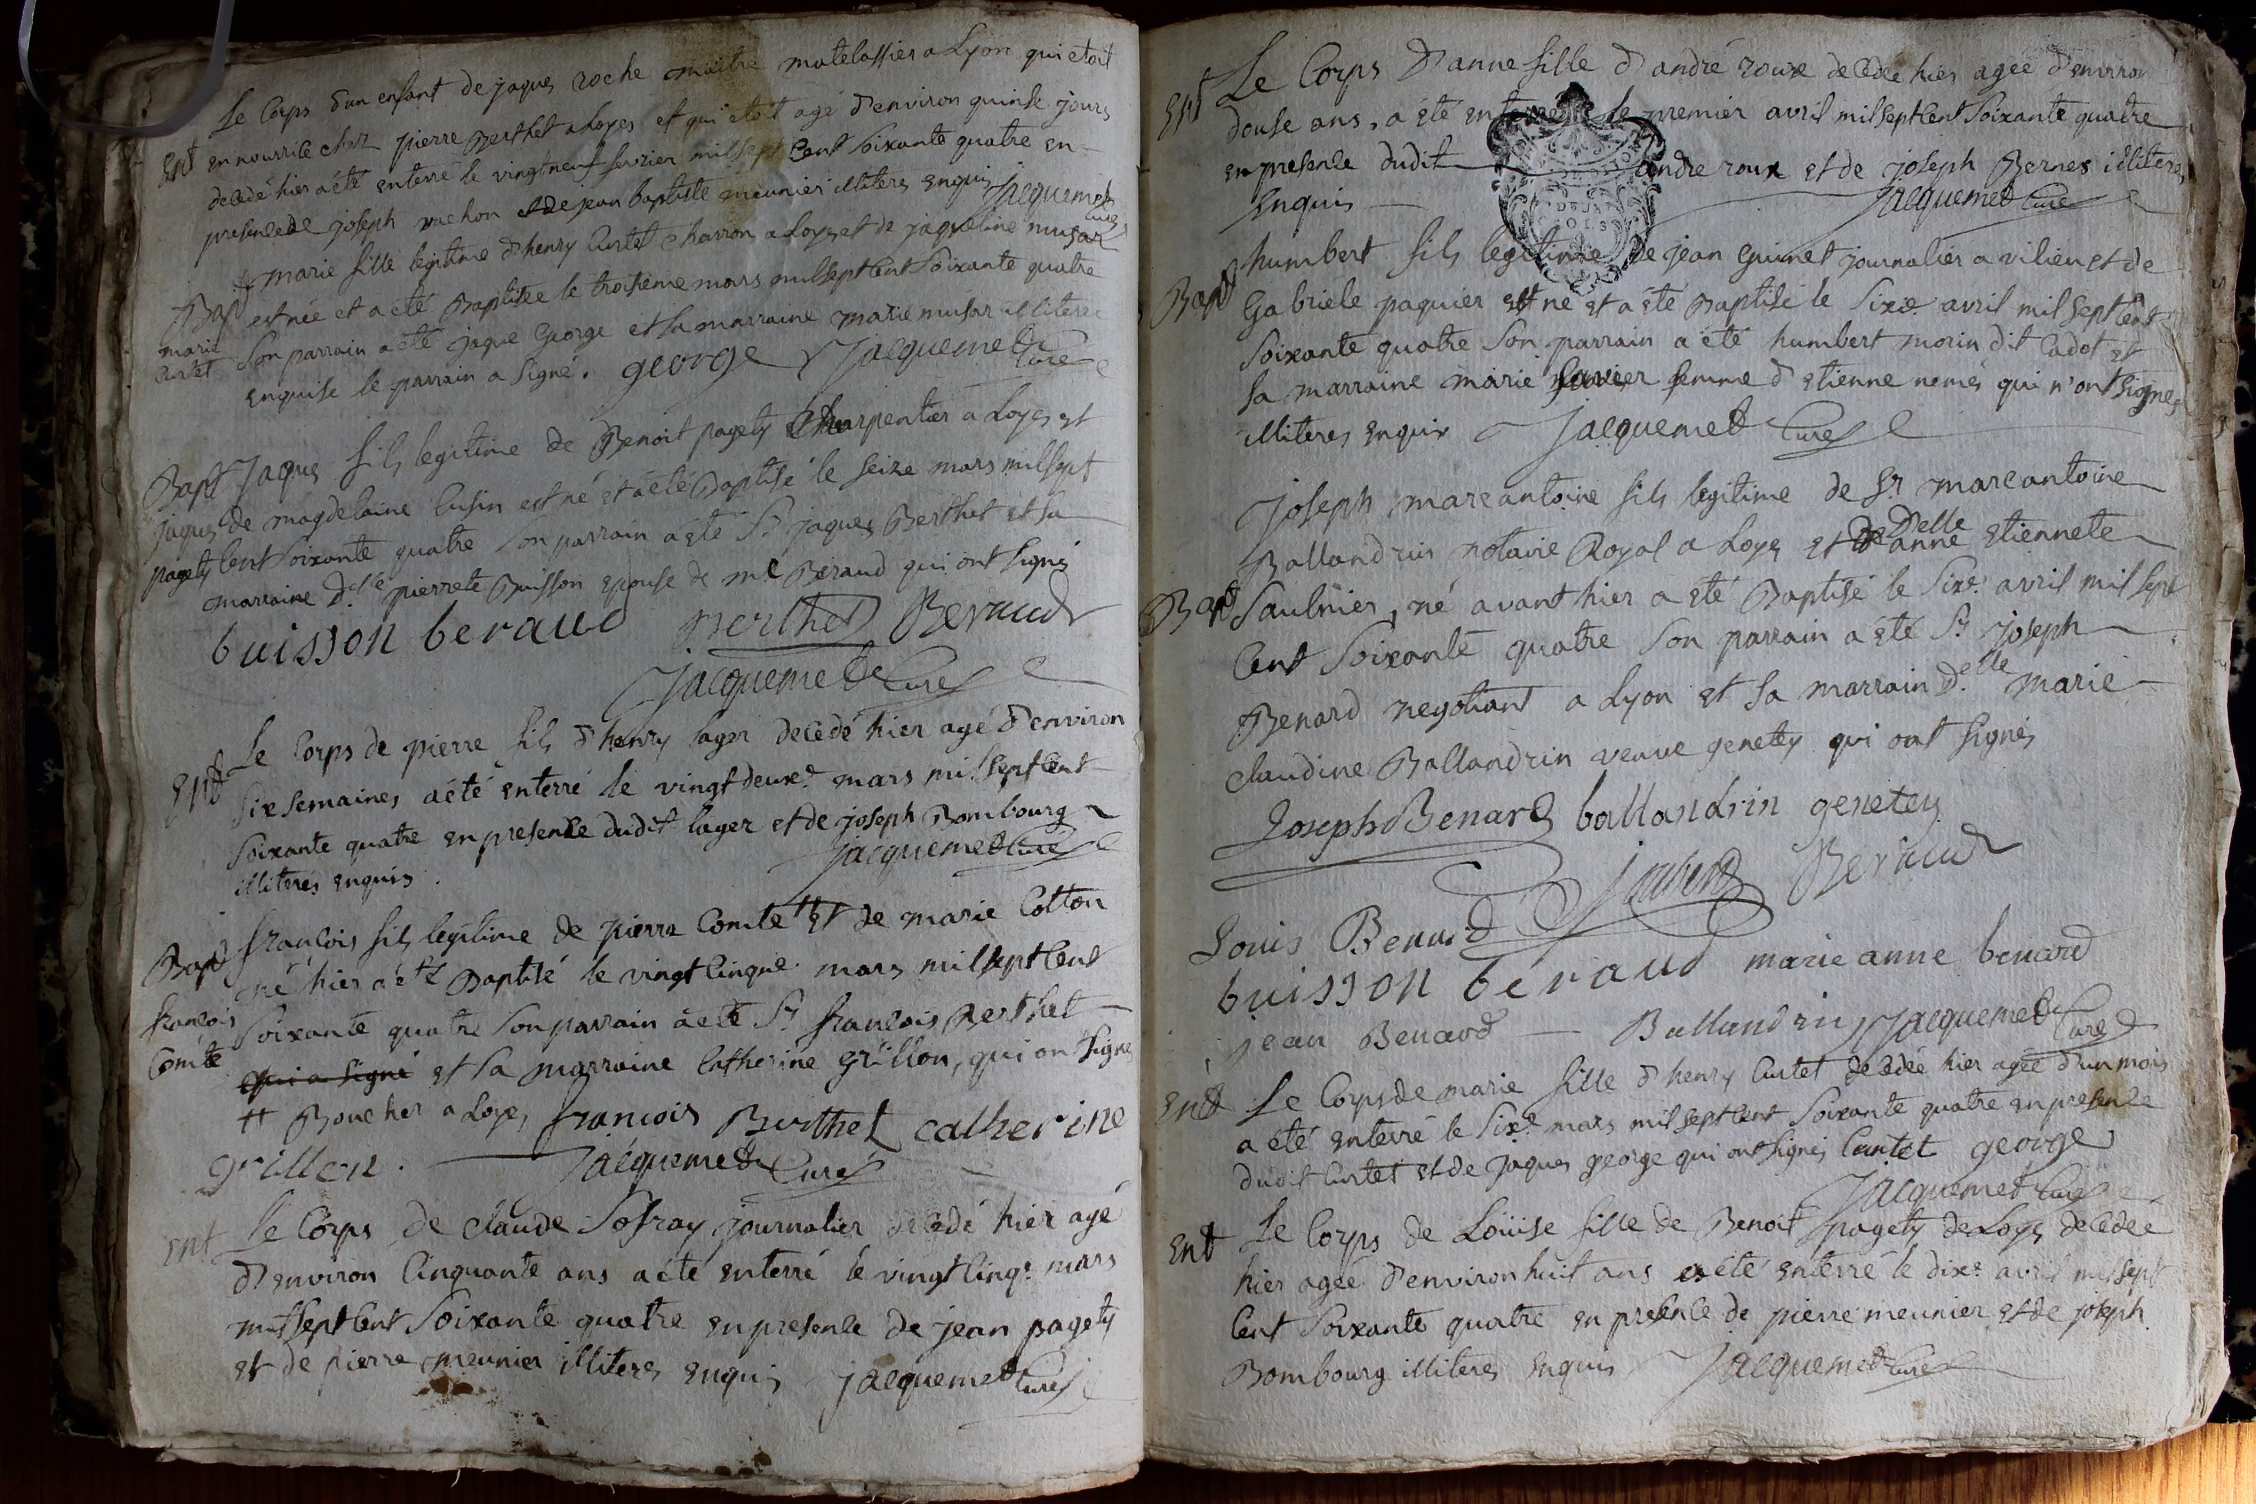 Le Corps d'un enfant de jaques roche maitre matelassier a Lyon qui etoit
Ent en nourrice chez pierre Berthet a Loyes et qui etoit agé d'environ quinse jours
decedé hier a été enterré le vingtneuf fevrier mil sept Cent Soixante quatre en
presence de joseph vachon et de jean baptiste meunier illiterés enquis Jacquemet
Curé
Bapt marie fille legitime d'henry Curtet charron a Loyes et de jaqueline musar
est née et a eté Baptisée le troisieme mars mil sept Cent Soixante quatre
marie Son parrain a eté jaque George et sa marraine marie musar illiterée
Curtet enquise le parrain a signé. george Jacquemet
Curé
Bapt Jaques fils legitime de Benoit pagety Charpentier a Loyes et
jaques de magdelaine Cusin est né et a été Baptisé le seize mars mil sept
pagety Cent Soixante quatre son parrain a été Sr jaques Berthet et sa
marraine Delle pierrete Buisson epouse de me Beraud qui ont signé
buisson beraud Berthet Beraud
Jacquemet Curé
Le Corps de pierre fils d'henry lager decedé hier agé d'environ
Ent six semaines a été enterré le vingt deuxe mars mil sept Cent
soixante quatre en presence dudit lager et de joseph Bombourg
illiterés enquis. Jacquemet Curé
Bapt francois fils legitime de pierre Comte tt et de marie Cotton
né hier a été Baptisé le vingt Cinque mars mil sept Cent
francois Soixante quatre son parrain a eté Sr francois Berthet
Comte qui a signé et sa marraine Catherine Grillon, qui ont signé
tt Boucher a Loyes francois Berthet catherine
grillon. Jacquemet Curé
Ent Le Corps de Claude Sofray journalier decedé hier agé
d'environ Cinquante ans a été enterré le vingt Cinqe mars
mil sept Cent Soixante quatre en presence de jean pagety
et de pierre meunier illiteres enquis Jacquemet Curé
Ent Le Corps d'anne fille d'andré roux decedée hier agée d'environ
douse ans, a été enterrée le premier avril mil sept Cent Soixante quatre
en presence dudit andre roux et de joseph Bernes illiteres
enquis Jacquemet Curé
humbert fils legitime de jean guinet journalier a vilieu et de
Bapt Gabriele paquier est né et a été Baptisé le Sixe avril mil sept Cent
Soixante quatre Son parrain a été humbert morin dit Cadot et
sa marraine marie femme d'etienne nemes qui n'ont signé
illiteres enquis Jacquemet Curé
Joseph marcantoine fils legitime de Sr marcantoine
Ballandrin notaire Royal a Loyes et de Delle anne etiennete
Bapt Saulnier, né avant hier a été Baptisé le Sixe avril mil sept
Cent Soixante quatre son parrain a été Sr joseph
Benard negotiant a Lyon et sa marrain Delle marie
claudine Ballandrin veuve genetey qui ont signés
Joseph Benard ballandrin genetey
Joubert Beraud
Louis Benard
buisson béraud marie anne benard
jean Benard Ballandrin Jacquemet Curé
Ent Le Corps de marie fille d'henry Curtet decedée hier agée d'un mois
a été enterré le Sixe mars mil sept Cent Soixante quatre en presence
dudit Curtet et de jaques george qui ont signés Curtet george
Jacquemet Curé
Ent Le Corps de Loüise fille de Benoit pagety de Loyes decedée
hier agée d'environ huit ans a été enterré le dixe avril mil sept
Cent Soixante quatre en presence de pierre meunier et de joseph
Bombourg illiteres enquis Jacquemet Curé